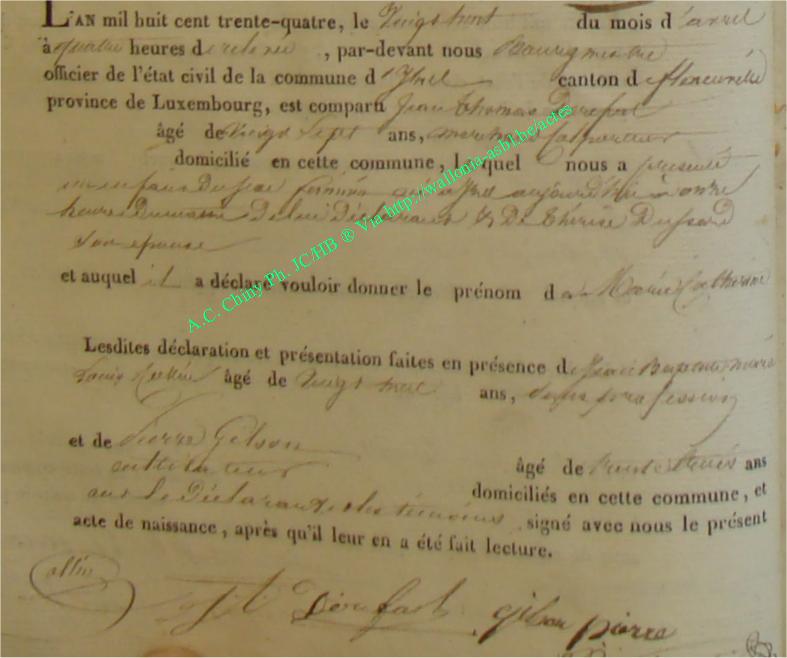 L'AN mil huit cent trente-quatre, le Vingt huit du mois d'avril
à quatre heures de relevée, par-devant nous Bourgmestre
officier de l'état civil de la commune d'Izel canton d
province de Luxembourg, est comparu Jean Thomas
âgé de Vingt Sept ans,
domicilié en cette commune, lequel nous a présenté
un enfant du sexe féminin né à Izel aujourd'hui à onze
heures Du matin De lui Déclarant & De Thérèse
son épouse
et auquel il a déclaré vouloir donner le prénom de Marie Catherine
Lesdites déclaration et présentation faites en présence de Jean Baptiste
Louis âgé de ans, sans profession
et de Pierre Gilson
cultivateur âgé de trente trois ans
domiciliés en cette commune, et
ont le Déclarant et les témoins signé avec nous le présent
acte de naissance, après qu'il leur en a été fait lecture.
gilson pierre
A.C. Chiny Ph. JC/HB ® Via http://wallonia-asbl.be/actes